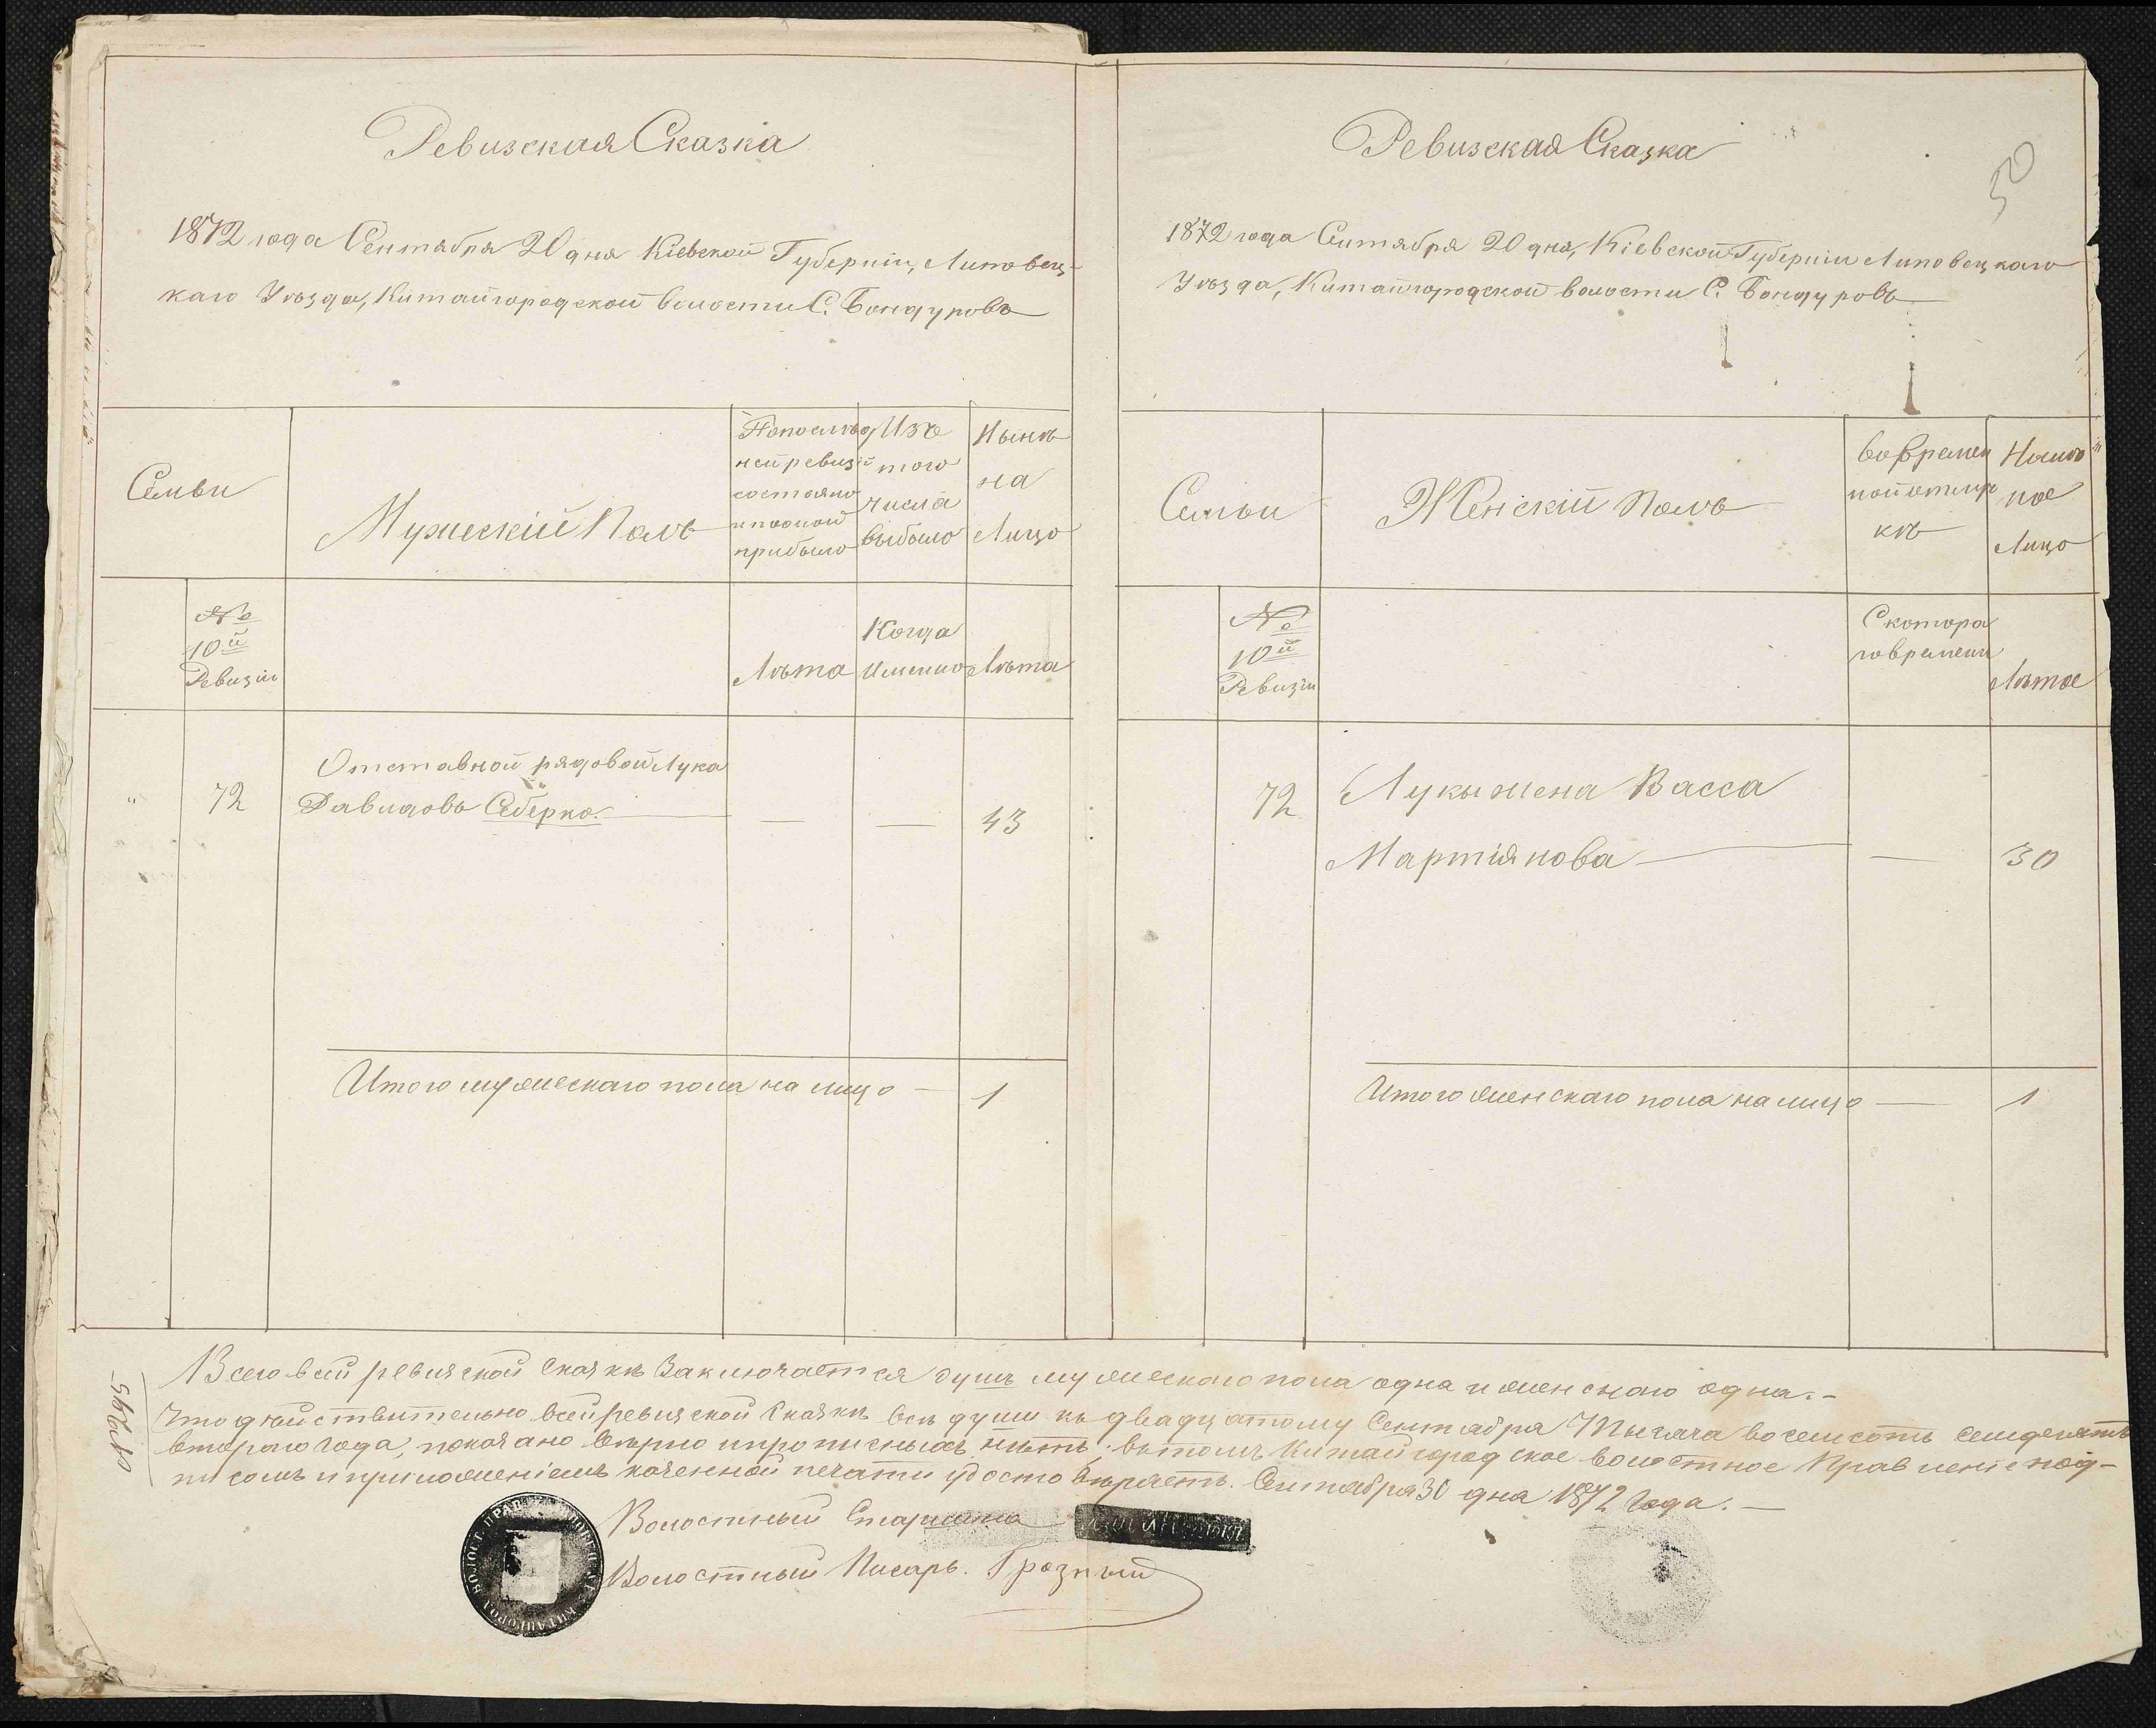 Ревизская Сказка
1872 года Сентября 20 дня Кіевской Губерніи, Липовец-
каго Уѣзда, Китайгородской волости С. Бондуровъ
Семьи
Мужескій Полъ
По послѣд
ней ревизіи
состояло
и послѣ
прибыло
Изъ
того
числа
выбыло
Нынѣ
на
Лицо
№
10й
Ревизіи
Лѣта
Когда
Именно
Лѣта
Отставной рядовой Лука
" 72 Давидовъ Себерко. — — 43
Итого мужескаго пола на лицо — 1
Ревизская Сказка
50
1872 года Сентября 20 дня, Кіевской Губерніи Липовецкаго
Уѣзда, Китайгородской волости С. Бондуровъ
Семьи
Женскій Полъ
Во времен
ной отлуч
кѣ
На
Лицо
№
10й
Ревизіи
С котора
го времени
Лѣта
72 Луки жена Васса
Мартіянова — — 30
Итого женскаго пола на лицо — 1
Всего в сей ревизской сказкѣ заключается душъ мужескаго пола одна и женскаго одна. -
Что дѣйствительно в сей ревизской сказкѣ всѣ души къ двадцатому Сентября Тысяча восемсотъ семдесятъ
втораго года, показано вѣрно и прописныхъ нѣтъ; въ томъ Китайгородское волостное Правленіе под-
писомъ и приложеніемъ казенной печати удостовѣряетъ. Сентября 30 дня 1872 года. —
Волостный Старшина
Волостный Писарь. Грозный
ВОЛОСТ. ПРАВ
КИТАЙГОРОД